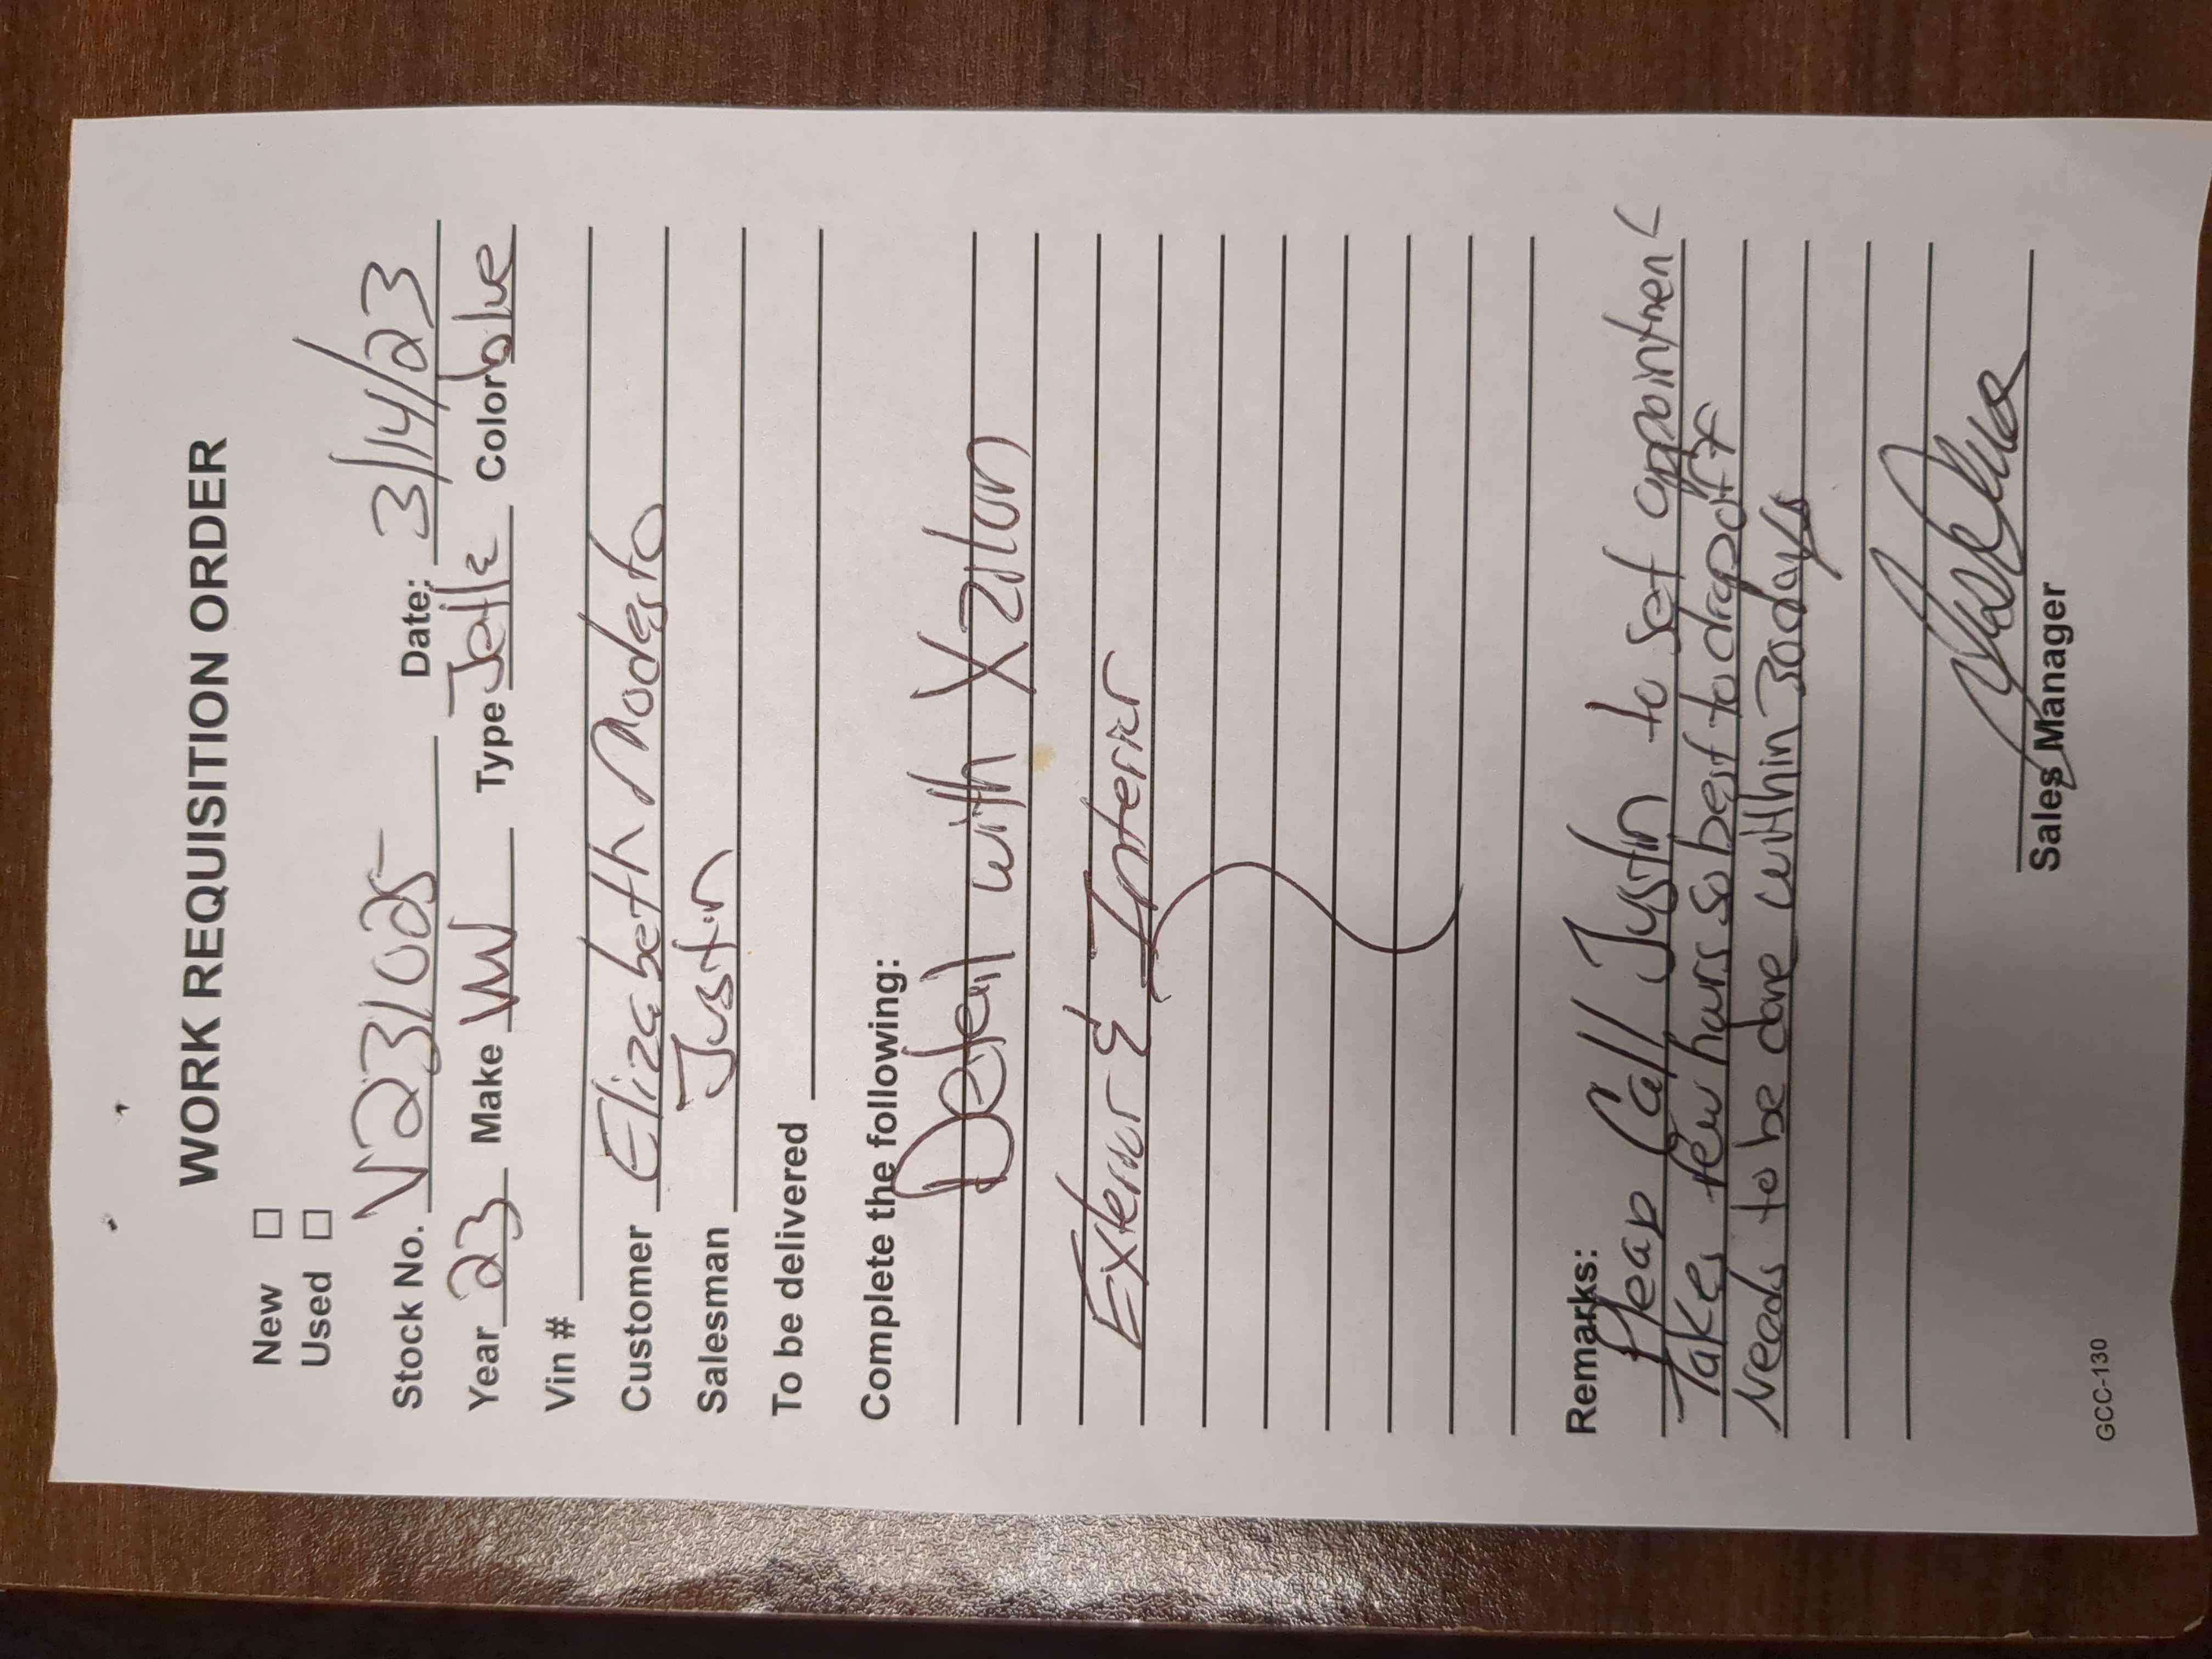 WORK REQUISITION ORDER
New ☐
Used ☐
Stock No. V231025 Date: 3/14/23
Year 23 Make VW Type Jetta Color blue
Vin #
Customer Elizabeth Modesto
Salesman Justin
To be delivered
Complete the following:
Detail with Xzilon
Exterior & Interior
Remarks:
Please Call Justin to set appointment
Takes few hours so best to drop off
Needs to be done within 30 days
Sales Manager
GCC-130